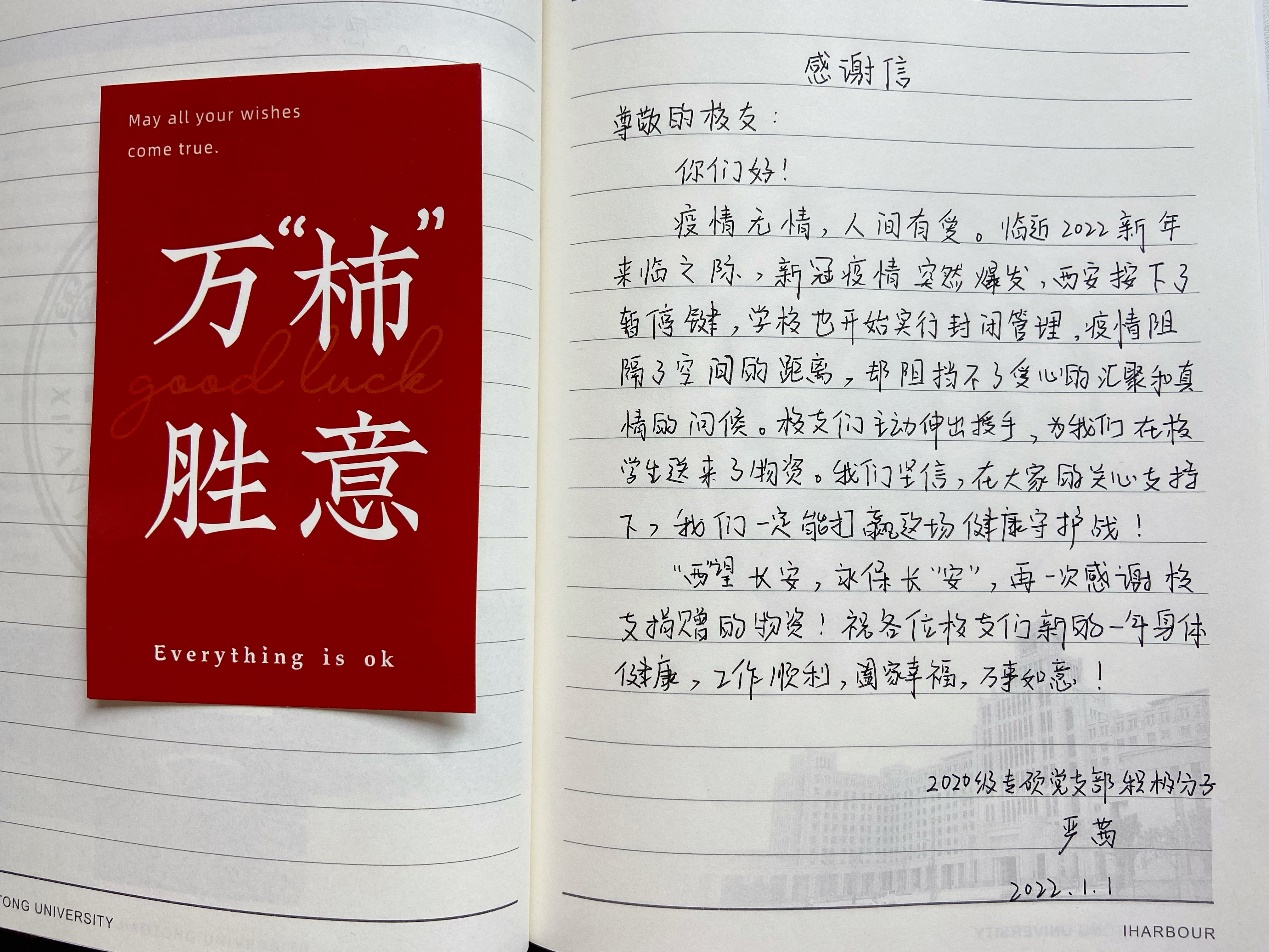 May all your wishes
come true.
万“柿”
good luck
胜意
Everything is ok
TONG UNIVERSITY
感谢信
尊敬的校友：
你们好！
疫情无情，人间有爱。临近2022新年
来临之际，新冠疫情突然爆发，西安按下了
暂停键，学校也开始实行封闭管理，疫情阻
隔了空间的距离，却阻挡不了爱心的汇聚和真
情的问候。校友们主动伸出援手，为我们在校
学生送来了物资。我们坚信，在大家的关心支持
下，我们一定能打赢这场健康守护战！
“西”望长安，永保长“安”，再一次感谢校
友捐赠的物资！祝各位校友们新的一年身体
健康，工作顺利，阖家幸福，万事如意！
2020级专硕党支部积极分子
严茜
2022.1.1
IHARBOUR